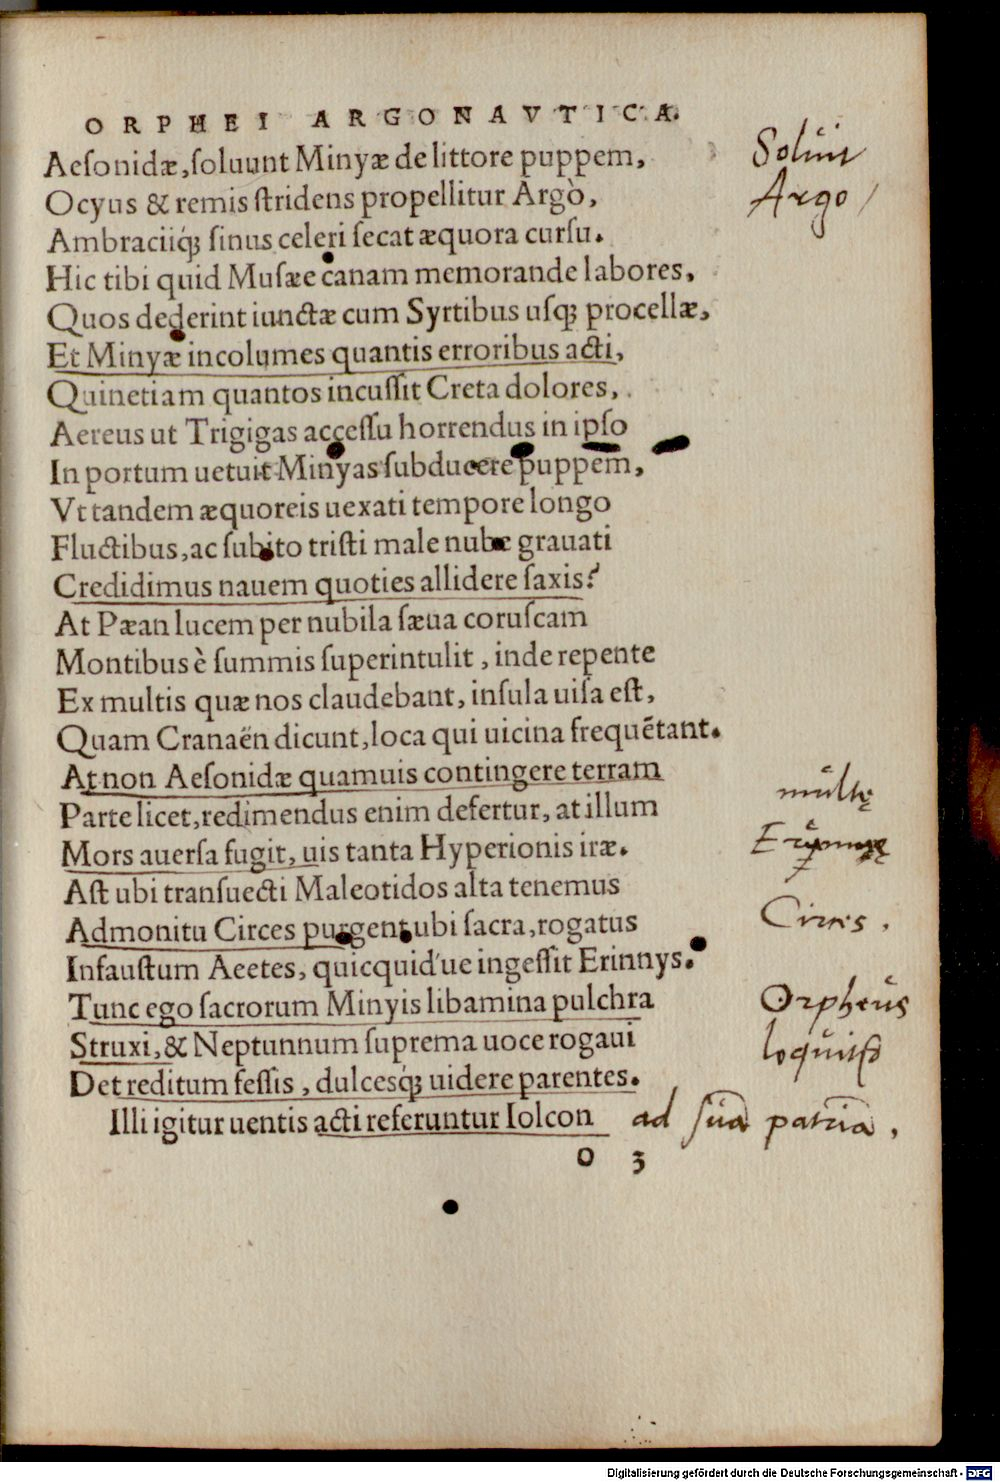 ORPHEI ARGONAVTICA.
Aesonidæ, ſoluunt Minyæ de littore puppem,
Ocyus & remis ſtridens propellitur Argò,
Ambraciiq́; ſinus celeri ſecat æquora curſu.
Hic tibi quid Muſæe canam memorande labores,
Quos dederint iunctæ cum Syrtibus uſq; procellæ,
Et Minyæ incolumes quantis erroribus acti,
Quinetiam quantos incuſſit Creta dolores,
Aereus ut Trigigas acceſſu horrendus in ipſo
In portum uetuit Minyas ſubducere puppem,
Vt tandem æquoreis uexati tempore longo
Fluctibus, ac ſubito triſti male nube grauati
Credidimus nauem quoties allidere ſaxis?
At Pæan lucem per nubila ſæua coruſcam
Montibus è ſummis ſuperintulit, inde repente
Ex multis quæ nos claudebant, inſula uiſa eſt,
Quam Cranaën dicunt, loca qui uicina frequẽtant.
At non Aeſonidæ quamuis contingere terram
Parte licet, redimendus enim defertur, at illum
Mors auerſa fugit, uis tanta Hyperionis iræ.
Aſt ubi transuecti Maleotidos alta tenemus
Admonitu Circes purgent ubi ſacra, rogatus
Infauſtum Aeetes, quicquid'ue ingeſſit Erinnys.
Tunc ego ſacrorum Minyis libamina pulchra
Struxi, & Neptunnum ſuprema uoce rogaui
Det reditum feſſis, dulcesq́; uidere parentes.
Illi igitur uentis acti referuntur Iolcon
o 3
Argo
multę
Circes.
Orpheus
ad ſuā patriā.
Digitalisierung gefördert durch die Deutsche Forschungsgemeinschaft - DFG